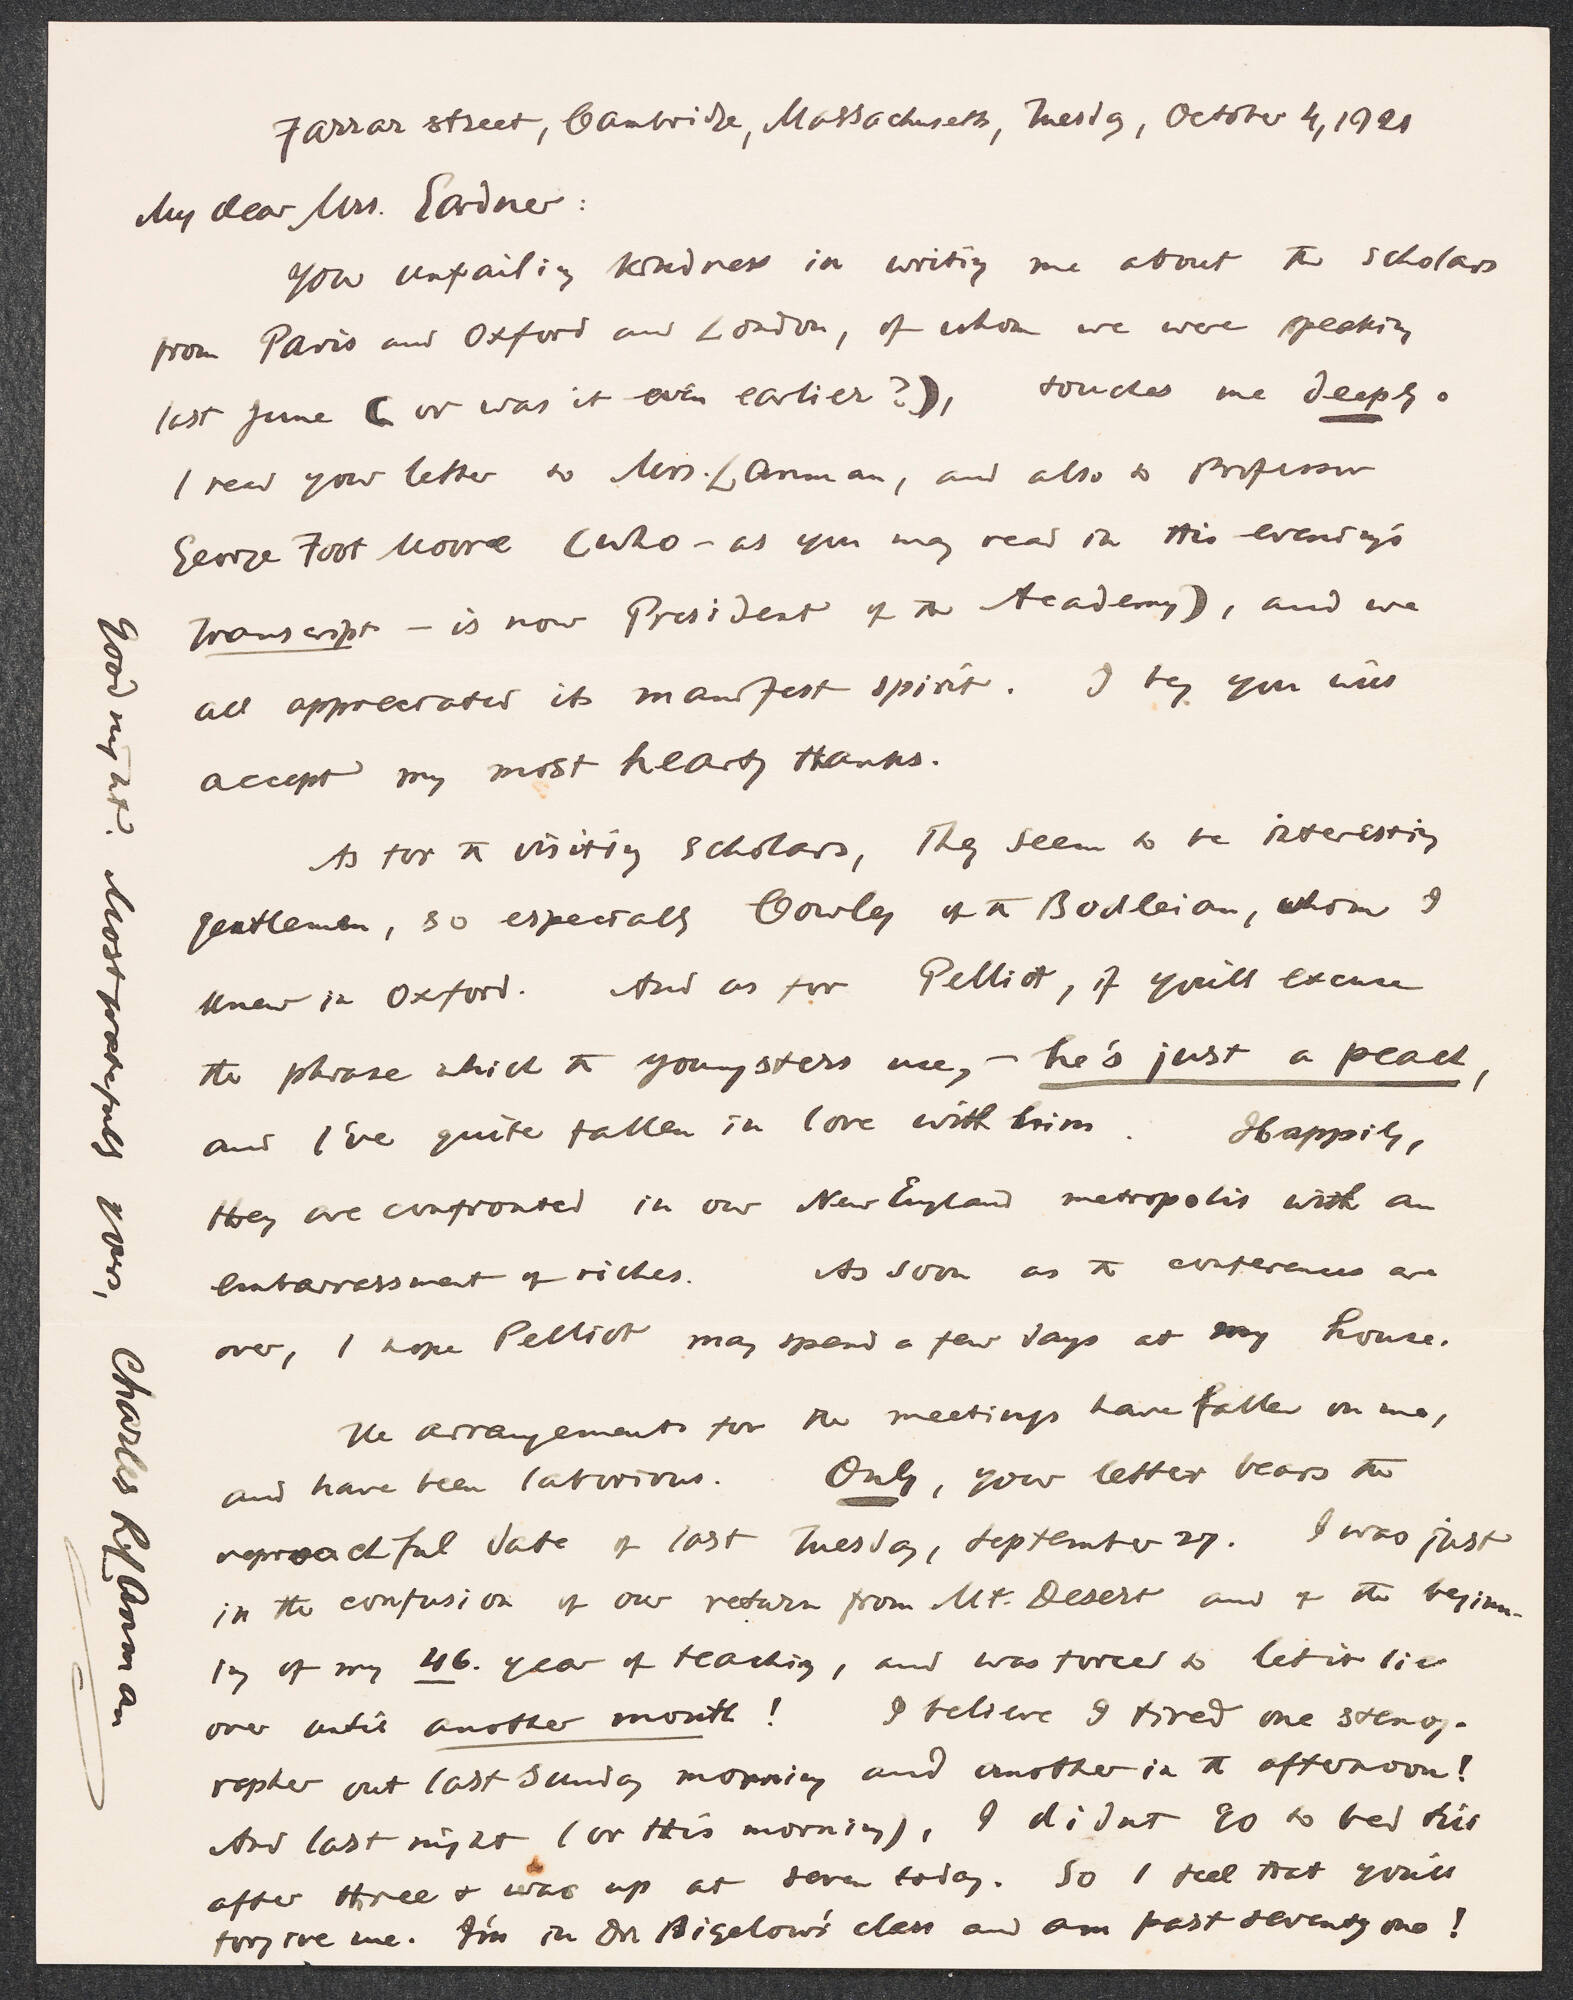 Farrar street, Cambridge, Massachusetts, Tuesday, October 4, 1921
My dear Mrs. Gardner:
Your unfailing kindness in writing me about the scholars
from Paris and Oxford and London, of whom we were speaking
last June (or was it even earlier?), touches me deeply.
I read your letter to Mrs. Lanman, and also to Professor
George Foot Moore (who – as you may read in this evening's
Transcript – is now President of the Academy), and we
all appreciated its manifest spirit. I beg you will
accept my most hearty thanks.
As for the visiting scholars, they seem to be interesting
gentlemen, so especially Cowley of the Bodleian, whom I
knew in Oxford. And as for Pelliot, if you'll excuse
the phrase which the youngsters use, – he's just a peach,
and I've quite fallen in love with him. Happily,
they are confronted in our New England metropolis with an
embarrassment of riches. As soon as the conferences are
over, I hope Pelliot may spend a few days at my house.
The arrangements for the meetings have fallen on me,
and have been laborious. Only, your letter bears the
reproachful date of last Tuesday, September 27. I was just
in the confusion of our return from Mt. Desert and of the beginn-
ing of my 46. year of teaching, and was forced to let it lie
over until another month! I believe I tired one stenog-
rapher out last Sunday morning and another in the afternoon!
And last night (or this morning), I didn't go to bed till
after three & was up at seven today. So I feel that you'll
forgive me. I'm in Dr Bigelow's class and am past seventy one!
Good night. Most gratefully yours,
Charles R. Lanman